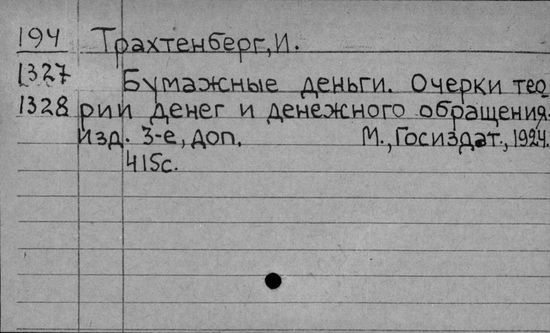 194 Трахтенберг, И.
1327 Бумажные деньги. Очерки тео
1328 рии денег и денежного обращения.
Изд. 3-е, доп. М., Госиздат., 1924.
415с.